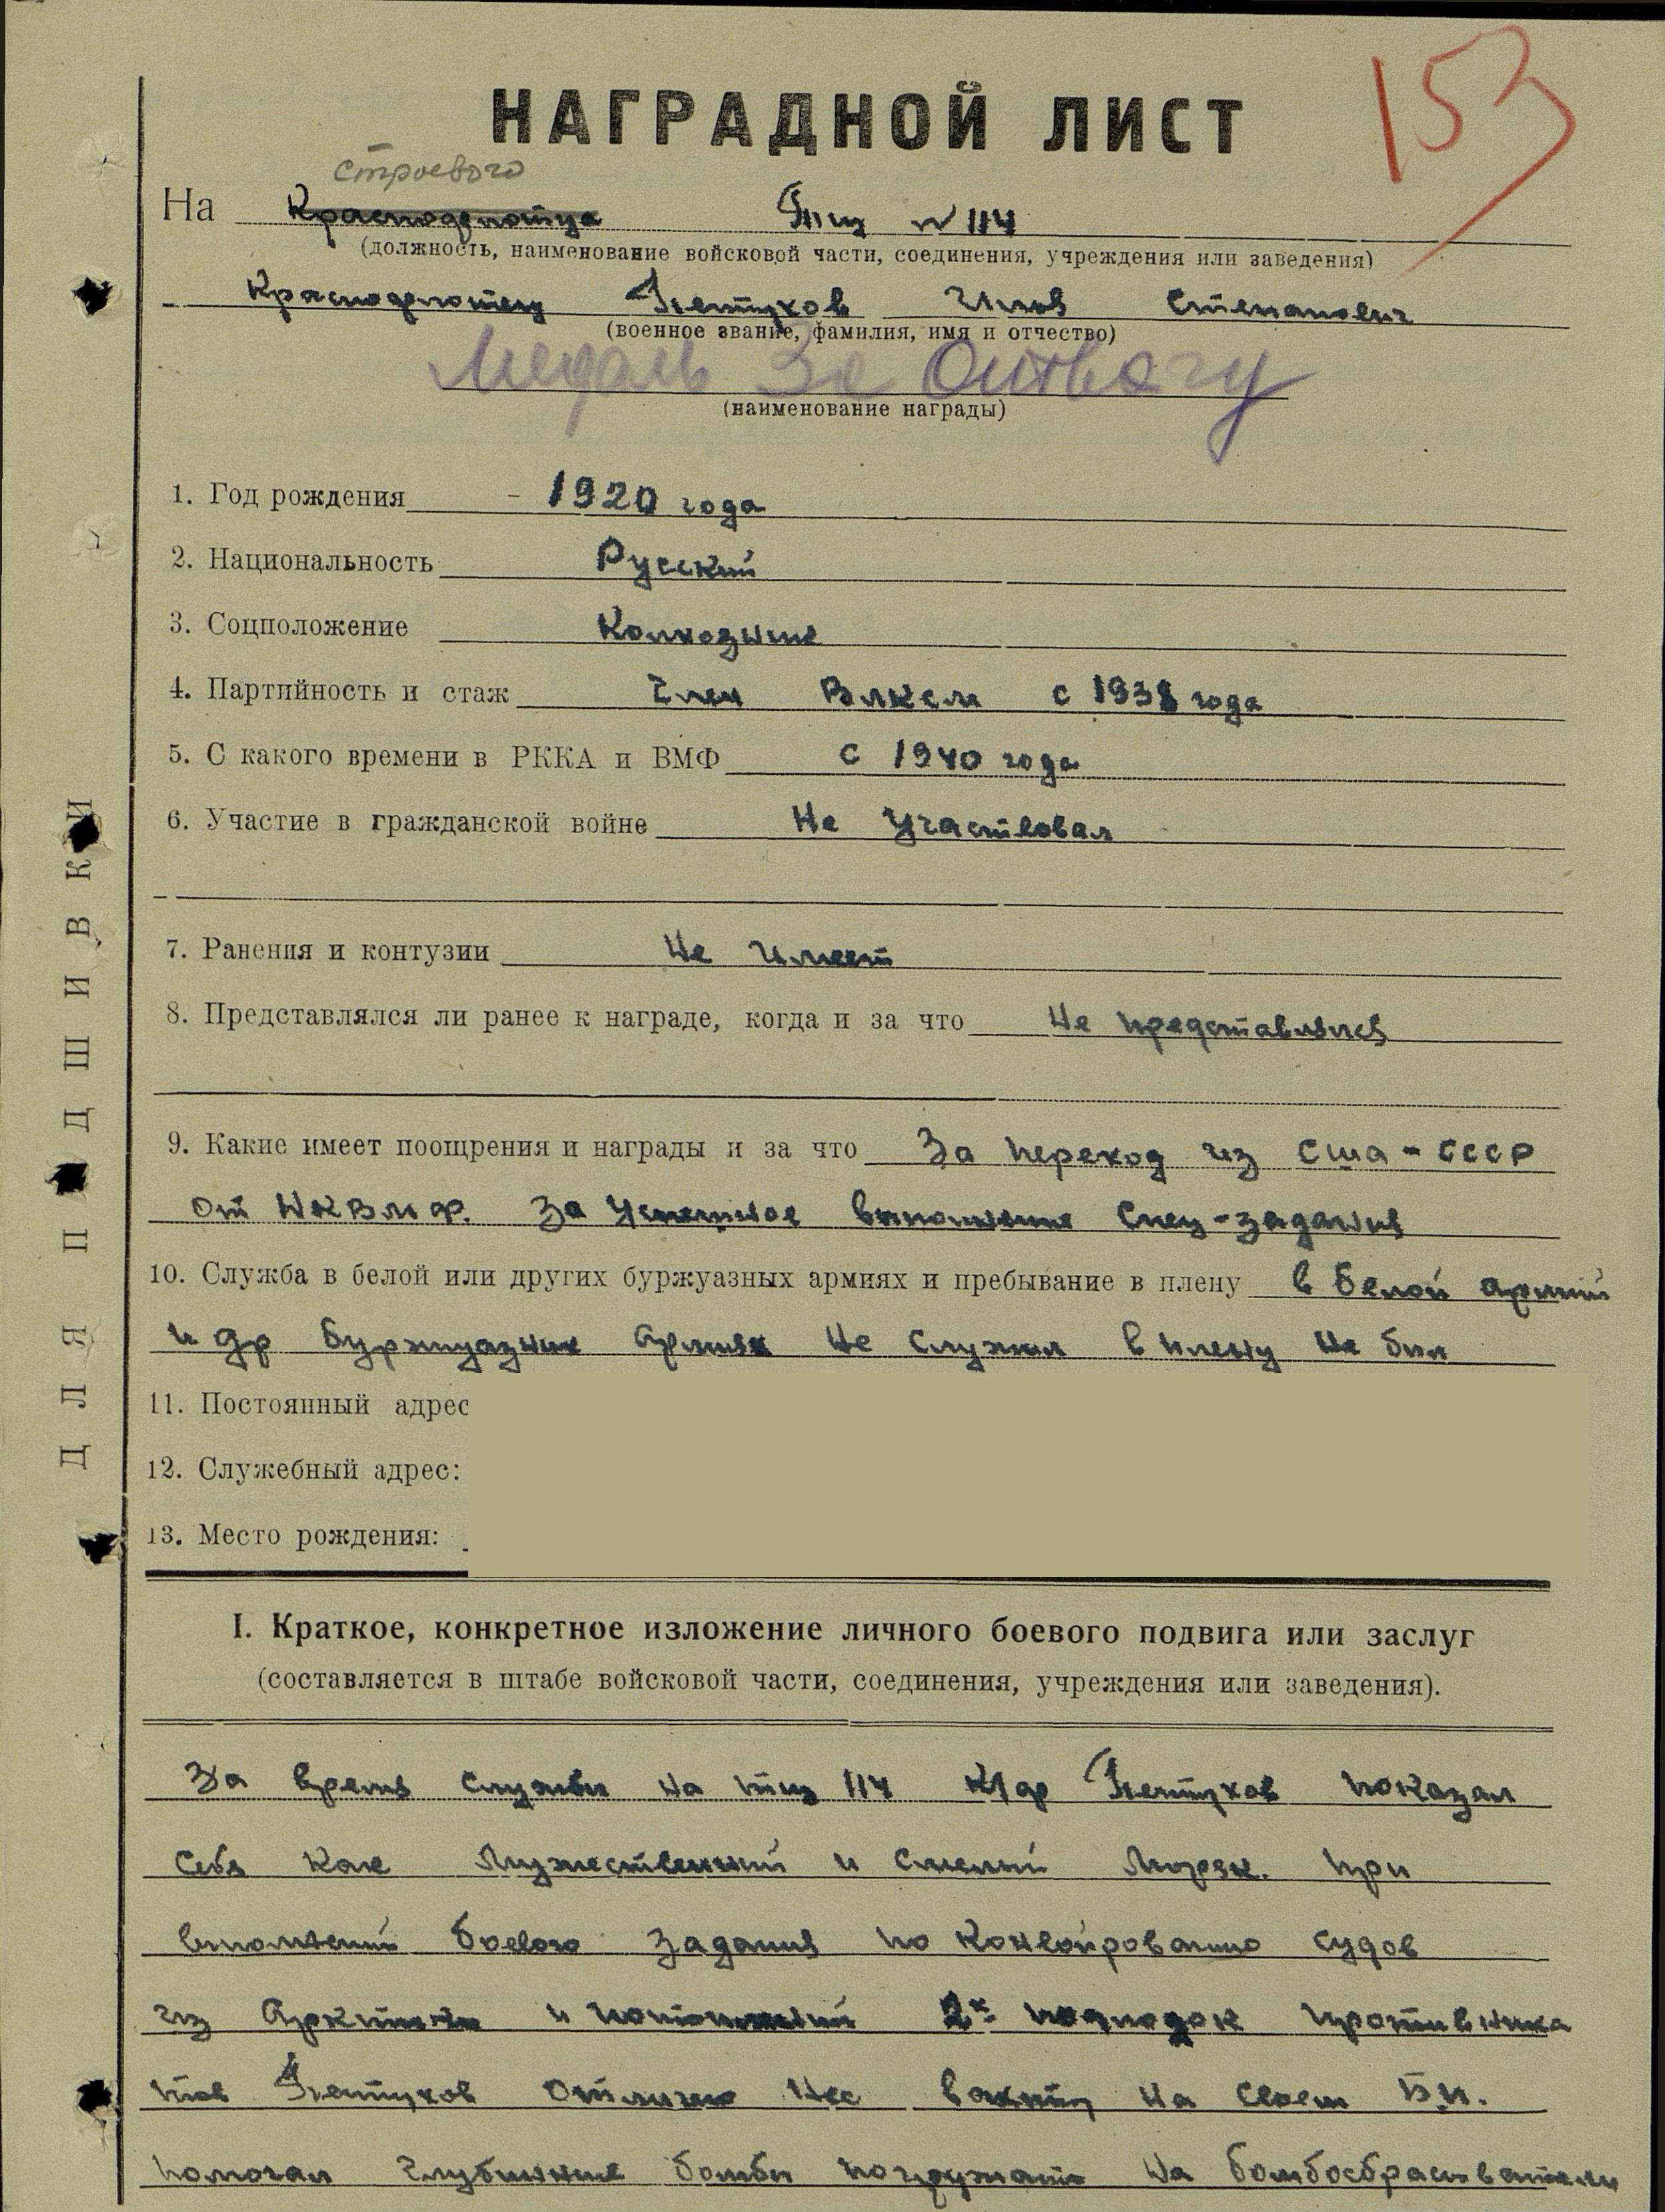 153
НАГРАДНОЙ ЛИСТ
строевого
На Краснофлотца Тщ N 114
(должность, наименование войсковой части, соединения, учреждения или заведения)
Краснофлотец Петухов Степанович
(военное звание, фамилия, имя и отчество)
Медаль За Отвагу
(наименование награды)
1. Год рождения - 1920 года
2. Национальность Русский
3. Соцположение Колхозник
4. Партийность и стаж Член ВЛКСМ с 1938 года
5. С какого времени в РККА и ВМФ с 1940 года
6. Участие в гражданской войне Не Участвовал
7. Ранения и контузии Не Имеет
8. Представлялся ли ранее к награде, когда и за что Не представлялся
9. Какие имеет поощрения и награды и за что За переход из США - СССР
от НКВМФ. За Успешное выполнение Спец-задания
10. Служба в белой или других буржуазных армиях и пребывание в плену в белой армии
и др буржуазных Армиях Не Служил в плену не был
11. Постоянный адрес
12. Служебный адрес:
13. Место рождения:
ДЛЯ ПОДШИВКИ
I. Краткое, конкретное изложение личного боевого подвига или заслуг
(составляется в штабе войсковой части, соединения, учреждения или заведения).
За время службы на тщ 114 К/ф Петухов показал
Себя как Мужественный и Смелый Моряк. при
выполнении боевого задания по Конвоированию судов
из Арктики и потоплений 2х подлодок противника
тов Петухов отлично Нес вахту на своем Б.П.
помогал глубинные бомбы погружать на бомбосбрасыватели